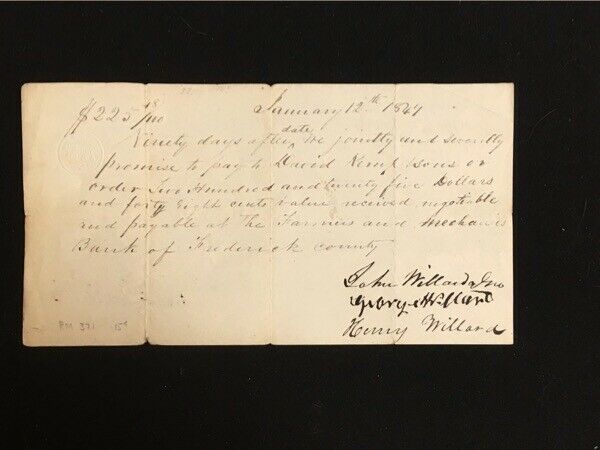 $225 48/100 January 12th 1847
Ninety days after date We jointly and severlly
promise to pay to David Kemp & sons or
order Two Hundred and twenty five Dollars
and forty Eight cents value received negotiable
and payable at The Farmers and Mechanics
Bank of Frederick county
John Willard
George Willard
Henry Willard
PM 371 15